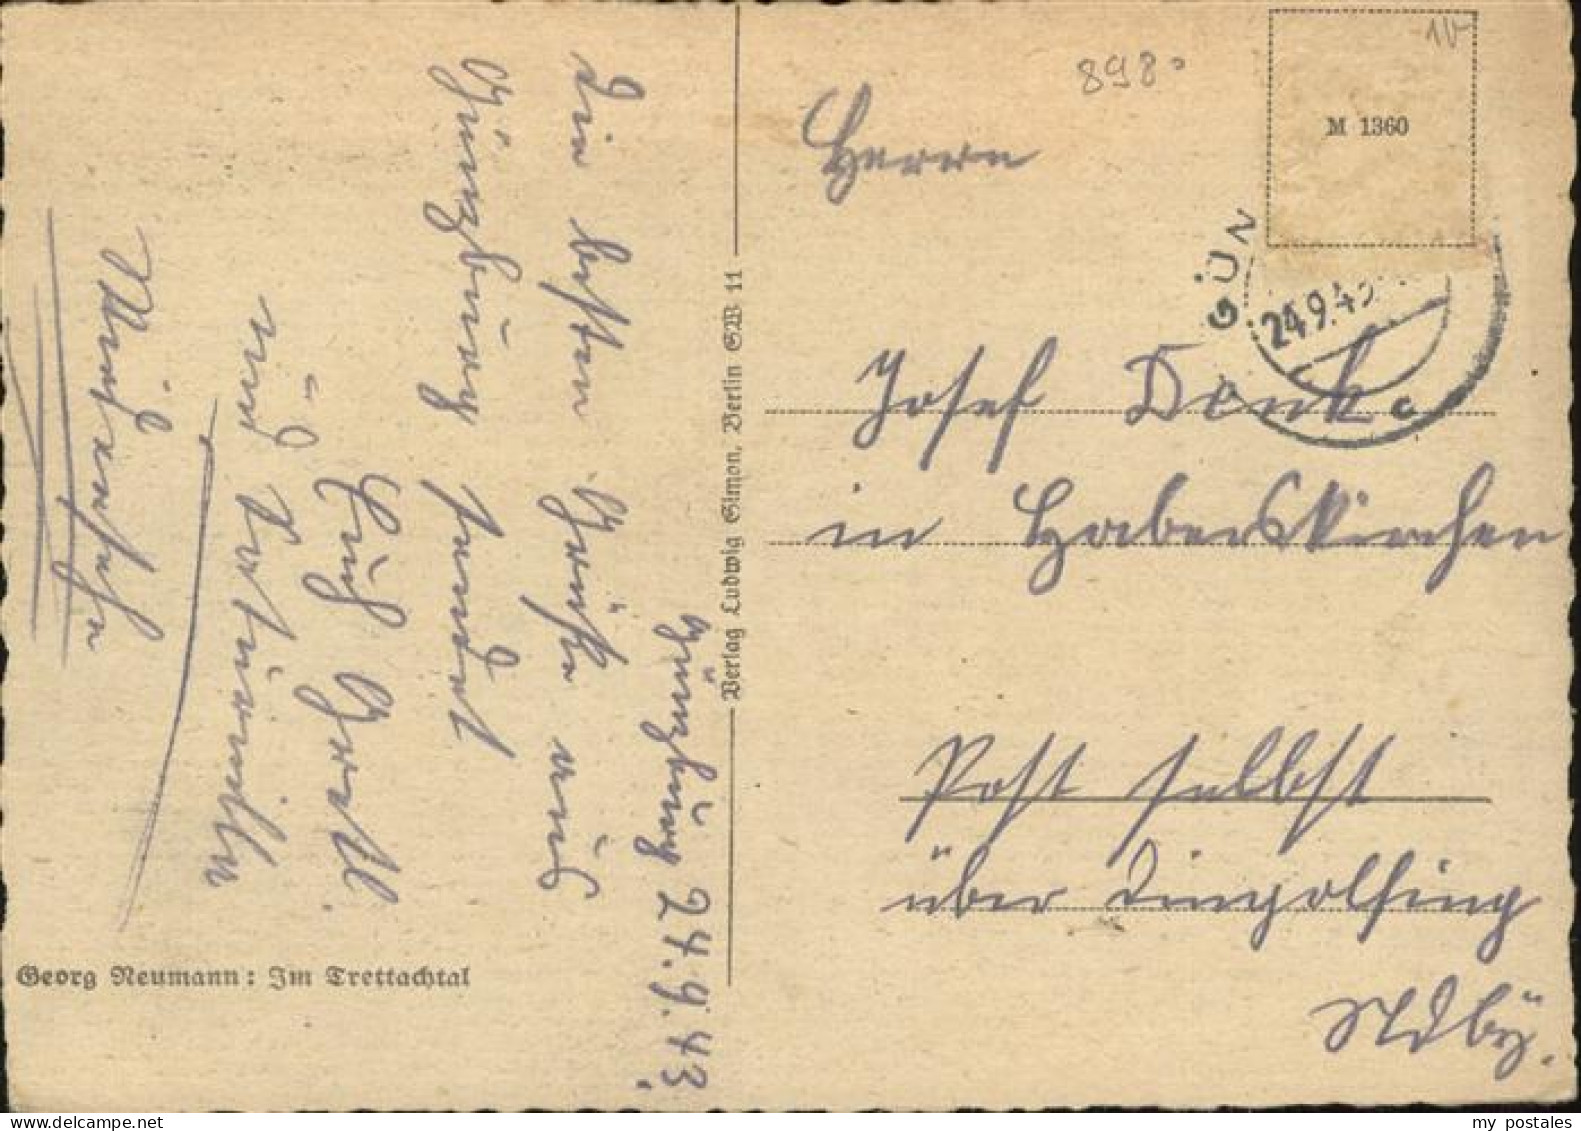 Günzburg 24.9.43.
Die besten Grüße aus
Günzburg sendet
Euch Gretl.
und
Auf Wiedersehn
Georg Neumann: Im Trettachtal
Verlag Ludwig Simon, Berlin SW 11
898
M 1360
GÜN
24.9.43
Herrn
Josef Denk.
in Haberskirchen
Post selbst
über Dingolfing
Ndby.